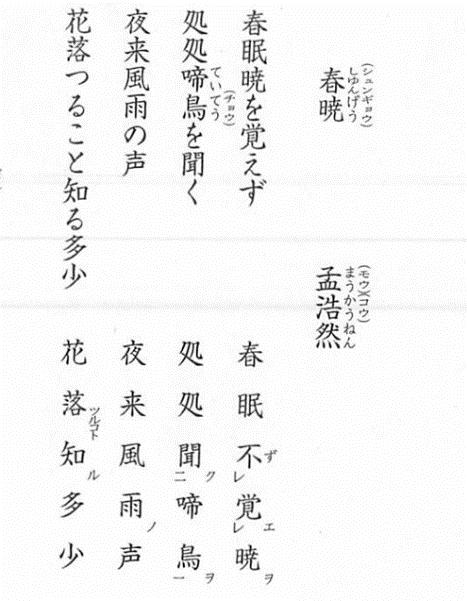 春暁
(シュンギョウ)
しゆんげう
孟浩然
(モウ)(コウ)
まうかうねん
春眠暁を覚えず
処処啼鳥を聞く
ていてう
(チョウ)
夜来風雨の声
花落つること知る多少
春眠不ずレ覚エレ暁ヲ
処処聞ク二啼鳥ヲ一
夜来風雨ノ声
花落ツルコト知ル多少